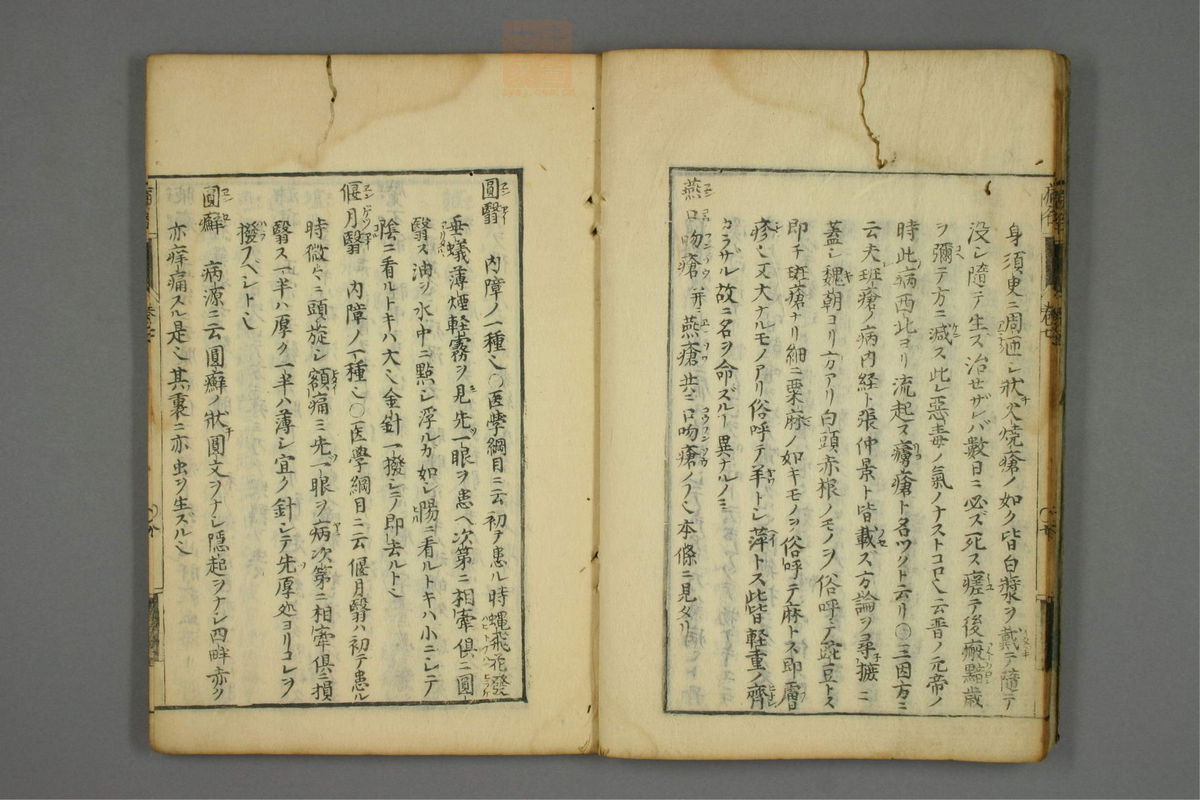 身須臾ニ周迊シ狀火燒瘡ノ如ク皆白漿ヲ戴テ隨テ
没シ隨テ生ズ治せザレバ數日ニ必ズ死ス瘥テ後瘢黯歳
ヲ彌テ方ニ滅ス此レ惡毒ノ氣ノナストコロ也云晋ノ元帝ノ
時此病西北ヨリ流起ス虜瘡ト名ツクト云リ〇三因方ニ
云夫班瘡ノ病内経ト張仲景ト皆載ス方論ヲ尋據ニ
蓋シ魏朝ヨリ方アリ白頭赤根ノモノヲ俗呼テ豌豆トス
即チ斑瘡ナリ細ニ粟麻ノ如キモノヲ俗呼テ麻トス即膚
疹也又大ナルモノアリ俗呼テ羊トシ萍トス此皆軽重ノ齊
カラザル故ニ名ヲ命ズルヿ異ナルノミ
燕口吻瘡并ニ燕瘡共ニ口吻瘡ノヿ也本條ニ見タリ
圓翳 内障ノ一種也〇医學綱目ニ云初テ患ル時蝿飛花發
垂蟻薄煙軽霧ヲ見先一眼ヲ患ヘ次第ニ相牽倶ニ圓
翳ス油ヲ水中ニ點シ浮ルカ如シ陽ニ看ルトキハ小ニシテ
陰ニ看ルトキハ大也金針一撥シテ即去ルト也
偃月翳 内障ノ一種也〇医学綱目ニ云偃月翳ハ初テ患ル
時微々ニ頭旋シ額痛ミ先一眼ヲ病次第ニ相牽倶ニ損
翳ス一半ハ厚ク一半ハ薄シ宜ク針シテ先厚処ヨリコレヲ
撥フベシト也
圓癬 病源ニ云圓癬ノ狀圓文ヲナシ隠起ヲナシ四畔赤ク
亦痒痛スル是也其裏ニ亦虫ヲ生ズルト也